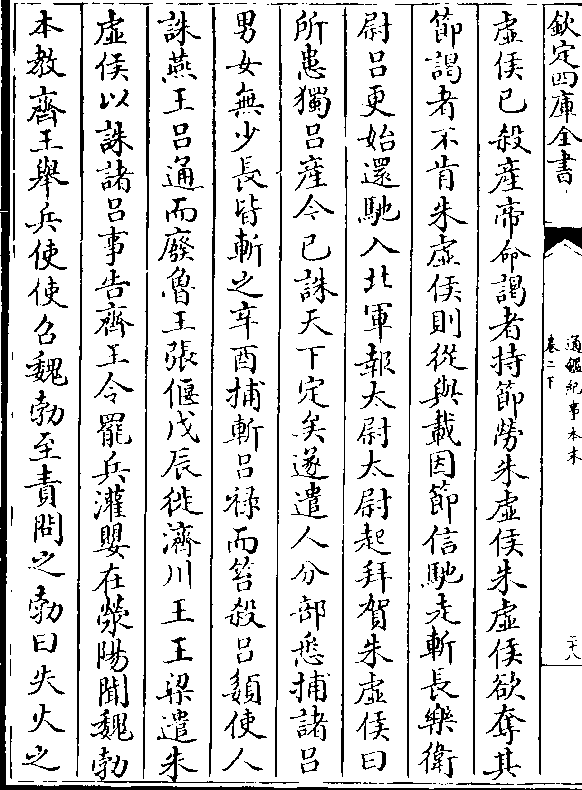 欽定四庫全書
通鑑紀事本末
卷二下
二十八
虛侯已殺產帝命謁者持節勞朱虛侯朱虛侯欲奪其
節謁者不肯朱虛侯則從與載因節信馳走斬長樂衛
尉吕更始還馳入北軍報太尉太尉起拜賀朱虛侯曰
所患獨吕產今已誅天下定矣遂遣人分部悉捕諸吕
男女無少長皆斬之辛酉捕斬吕祿而笞殺吕嬃使人
誅燕王吕通而廢魯王張偃戊辰徙濟川王王梁遣朱
虛侯以誅諸吕事告齊王令罷兵灌嬰在滎陽聞魏勃
本教齊王舉兵使使召魏勃至責問之勃曰失火之